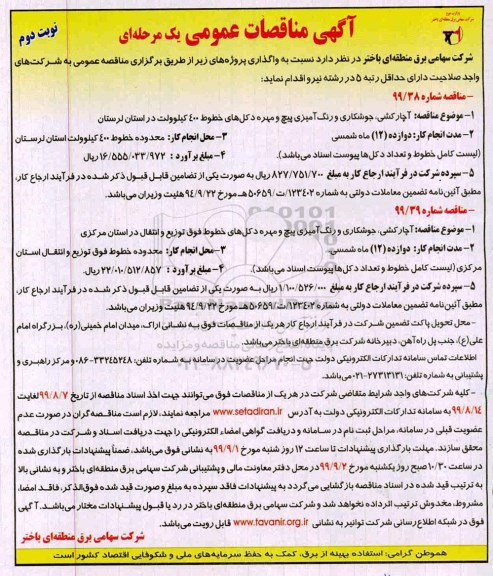 وزارت نیرو
شرکت سهامی برق منطقه‌ای باختر
آگهی مناقصات عمومی یک مرحله‌ای
نوبت دوم
شرکت سهامی برق منطقه‌ای باختر در نظر دارد نسبت به واگذاری پروژه‌های زیر از طریق برگزاری مناقصه عمومی به شرکت‌های
واجد صلاحیت دارای حداقل رتبه ۵ در رشته نیرو اقدام نماید:
- مناقصه شماره ۹۹/۳۸
۱- موضوع مناقصه: آچارکشی، جوشکاری و رنگ‌آمیزی پیچ و مهره دکل‌های خطوط ۴۰۰ کیلوولت در استان لرستان
۲- مدت انجام کار: دوازده (۱۲) ماه شمسی ۳- محل انجام کار: محدوده خطوط ۴۰۰ کیلوولت استان لرستان
(لیست کامل خطوط و تعداد دکل‌ها پیوست اسناد می‌باشد). ۴- مبلغ برآورد : ۱۶/۵۵۵/۰۳۳/۹۷۲ ریال
۵- سپرده شرکت در فرآیند ارجاع کار به مبلغ ۸۲۷/۷۵۱/۷۰۰ ریال به صورت یکی از تضامین قابل قبول ذکر شده در فرآیند ارجاع کار،
مطابق آئین‌نامه تضمین معاملات دولتی به شماره ۱۲۳۴۰۲/ت۵۰۶۵۹هـ مورخ ۹۴/۹/۲۲ هئیت وزیران می‌باشد.
- مناقصه شماره ۹۹/۳۹
۱- موضوع مناقصه: آچارکشی، جوشکاری و رنگ‌آمیزی پیچ و مهره دکل‌های خطوط فوق توزیع و انتقال در استان مرکزی
۲- مدت انجام کار: دوازده (۱۲) ماه شمسی ۳- محل انجام کار: محدوده خطوط فوق توزیع و انتقال استان
مرکزی (لیست کامل خطوط و تعداد دکل‌ها پیوست اسناد می‌باشد). ۴- مبلغ برآورد : ۲۲/۰۱۰/۵۱۲/۸۵۷ ریال
۵- سپرده شرکت در فرآیند ارجاع کار به مبلغ ۱/۱۰۰/۵۲۶/۰۰۰ ریال به صورت یکی از تضامین قابل قبول ذکر شده در فرآیند ارجاع کار،
مطبق آئین‌نامه تضمین معاملات دولتی به شماره ۱۲۳۴۰۲/ت۵۰۶۵۹هـ مورخ ۹۴/۹/۲۲ هئیت وزیران می‌باشد.
- محل تحویل پاکت تضمین شرکت در فرآیند ارجاع کار هر یک از مناقصات فوق به نشانی اراک، میدان امام خمینی(ره)، بزرگراه امام
علی(ع)، جنب پل راه‌آهن، دبیرخانه شرکت برق منطقه‌ای باختر می‌باشد.
اطلاعات تماس سامانه تدارکات الکترونیکی دولت جهت انجام مراحل عضویت در سامانه به شماره تلفن: ۳۳۲۴۵۲۴۸-۰۸۶ و مرکز راهبری و
پشتیبانی به شماره تلفن: ۲۷۳۱۳۱۳۱-۰۲۱ می‌باشد.
- کلیه شرکت‌های واجد شرایط متقاضی شرکت در هر یک از مناقصات فوق می‌توانند جهت اخذ اسناد مناقصه از تاریخ ۹۹/۸/۷ لغایت
۹۹/۸/۱۴ به سامانه تدارکات الکترونیکی دولت به آدرس www.setadiran.ir مراجعه نمایند. لازم است مناقصه‌گران در صورت عدم
عضویت قبلی در سامانه، مراحل ثبت نام در سامانه و دریافت گواهی امضاء الکترونیکی را جهت دریافت اسناد و شرکت در مناقصه
محقق سازند. مهلت بارگذاری پیشنهادات تا ساعت ۱۲ روز شنبه مورخ ۹۹/۹/۱ به نشانی فوق می‌باشد، ضمناً پیشنهادات بارگذاری شده
در ساعت ۱۰/۳۰ صبح روز یکشنبه مورخ ۹۹/۹/۲ در محل دفتر معاونت مالی و پشتیبانی شرکت سهامی برق منطقه‌ای باختر و به نشانی بالا
به ترتیب قید شده در اسناد مناقصه بازگشایی می‌گردد به پیشنهادات فاقد سپرده به مبلغ و صورت قید شده فوق‌الذکر، فاقد امضا،
مشروط، مخدوش ترتیب اثر داده نخواهد شد و شرکت سهامی برق منطقه‌ای باختر در رد یا قبول پیشنهادات مختار می‌باشد. آگهی
فوق در شبکه اطلاع‌رسانی شرکت توانیر به نشانی www.tavanir.org.ir قابل رویت می‌باشد.
شرکت سهامی برق منطقه‌ای باختر
هموطن گرامی: استفاده بهینه از برق، کمک به حفظ سرمایه‌های ملی و شکوفایی اقتصاد کشور است